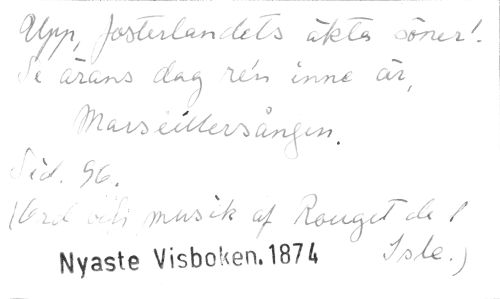 Upp, fosterlandets äkta söner!
Se ärans dag re'n inne är,
Marseillersången.
Sid. 96.
(Ord och musik af Rouget de l
Isle.)
Nyaste Visboken. 1874